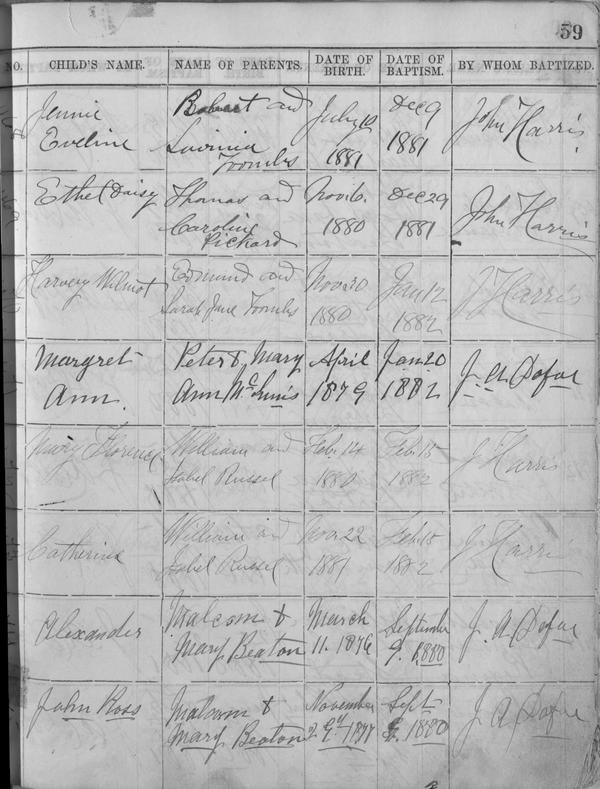 59
NO. CHILD'S NAME. NAME OF PARENTS. DATE OF BIRTH. DATE OF BAPTISM. BY WHOM BAPTIZED.
Jennie Robert and July 10 Dec 9 John Harris
Eveline Lavinia 1881 1881
Toombs
Ethel Daisy Thomas and Nov. 6. Dec 29 John Harris
Caroline 1880 1881
Pickard
Harvey Wilmot Edmund and Nov 20 Jan 12 J Harris
Sarah Jane Toombs 1880 1882
Margret Peter & Mary April Jan 20 J. A. Dofoe
Ann. Ann McInnis 1879 1882
Mary Florence William and Feb. 14 Feb. 15 J Harris
Isabel Russel 1880 1882
Catherine William and Nov 22 Feb 15 J Harris
Isabel Russel 1881 1882
Alexander Malcom & March September J. A. Dofoe
Mary Beaton 11. 1876 9. 1880
John Ross Malcom & November Sept J A Dofoe
Mary Beaton 1877 9. 1880